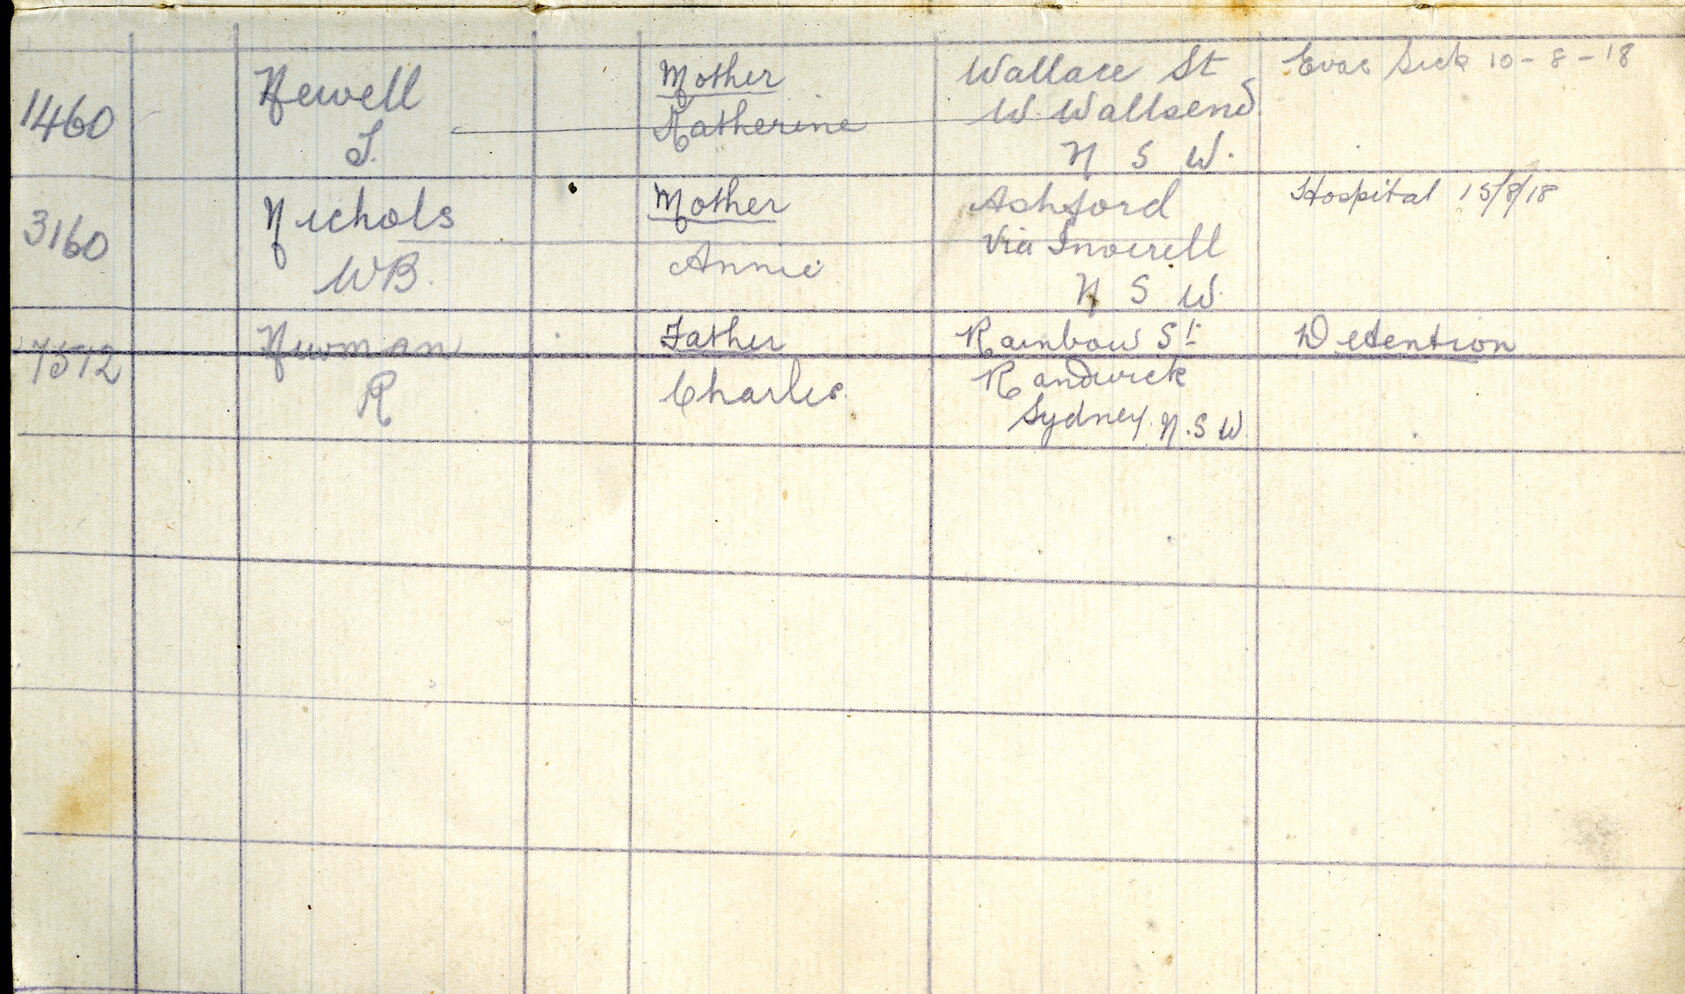 1460 Newell Mother Wallace St Evac Sick 10-8-18
Katherine W. Wallsend
N S W.
3160 Nichols Mother Ashford Hospital 15/8/18
WB. Annie Via Inverell
N S W.
7512 Newman Father Rainbow St Detention
R Charles. Randwick
Sydney. N.S W